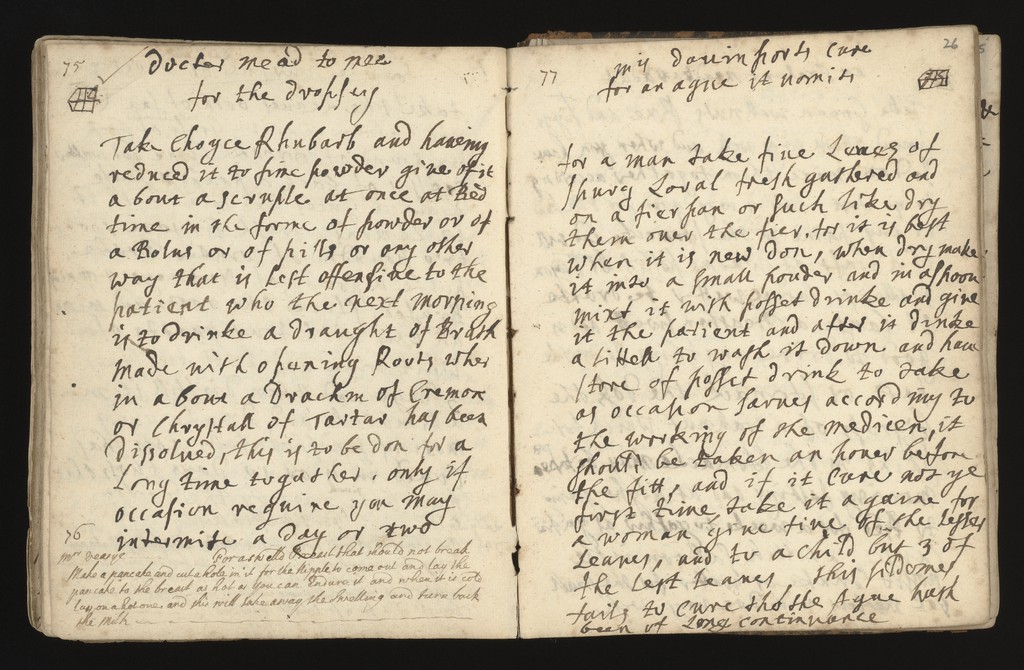 75
Docter mead to mee
for the dropsey
Take Choyce Rhubarb and haveing
reduced it to fine powder give of it
a bout a scruple at once at Bed
time in the forme of powder or of
a Bolus or of pills or any other
way that is Lest offensive to the
patient who the next morning
is to drinke a draught of Broth
made with opening Roots wher
in a bout a Drachm of Cremor
or Chrystall of Tartar has been
Dissolved, this is to be don for a
Long time togather, only if
occasion requier you may
intermitt a day or two
76
mrs For a sweld Breast that would not break
Make a pancake and cut a hole in it for the Nipple to come out and lay the
pancake to the breast as hot as you can Endure it and when it is cold
lay on a hot one, and this will take away the swelling and turn back
the Milk
77
26
mis Davinports Cure
for an ague it vomits
for a man take five Leves of
spurg Loral fresh gathered and
on a fier pan or such like dry
them over the fier, for it is best
when it is new don, when dry make
it into a small pouder and in a spoon
mixt it with posset drinke and give
it the patient and after it dinke
a littell to wash it down and have
store of posset drink to take
as occasion sarves according to
the working of the medicen, it
should be taken an houer before
the fitt, and if it Cure not ye
first time, take it againe for
a woman give five of the lesser
Leaves, and to a child but 3 of
the Lest Leaves, this seldome
fails to Cure tho the Ague hath
been of Long continuance